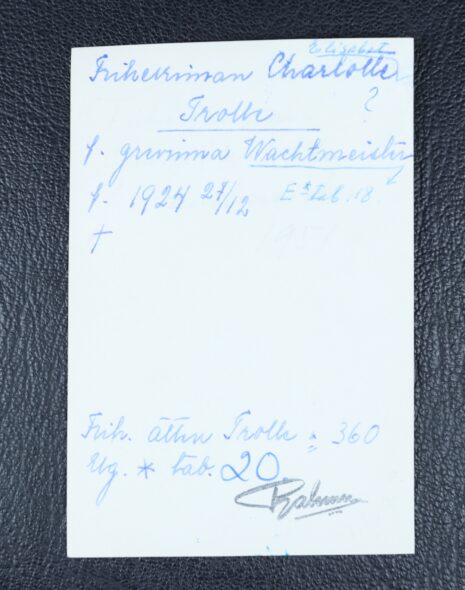 Elisabet
Friherrinnan Charlotte
?
Trolle
f. grevinna Wachtmeister
f. 1924 27/12 E* tab. 18.
†
Frih. ätten Trolle : 360
Ug. * tab. 20